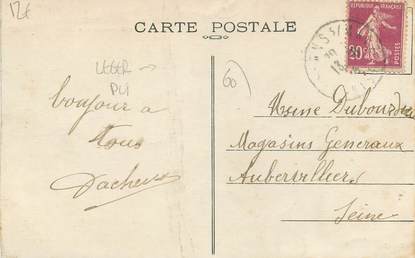 12€
CARTE POSTALE
REPUBLIQUE FRANÇAISE
20c
POSTES
LEGER →
PLI
60
bonjour a
tous
Usine Dubourdieu
Magasins Generaux
Aubervilliers
Seine